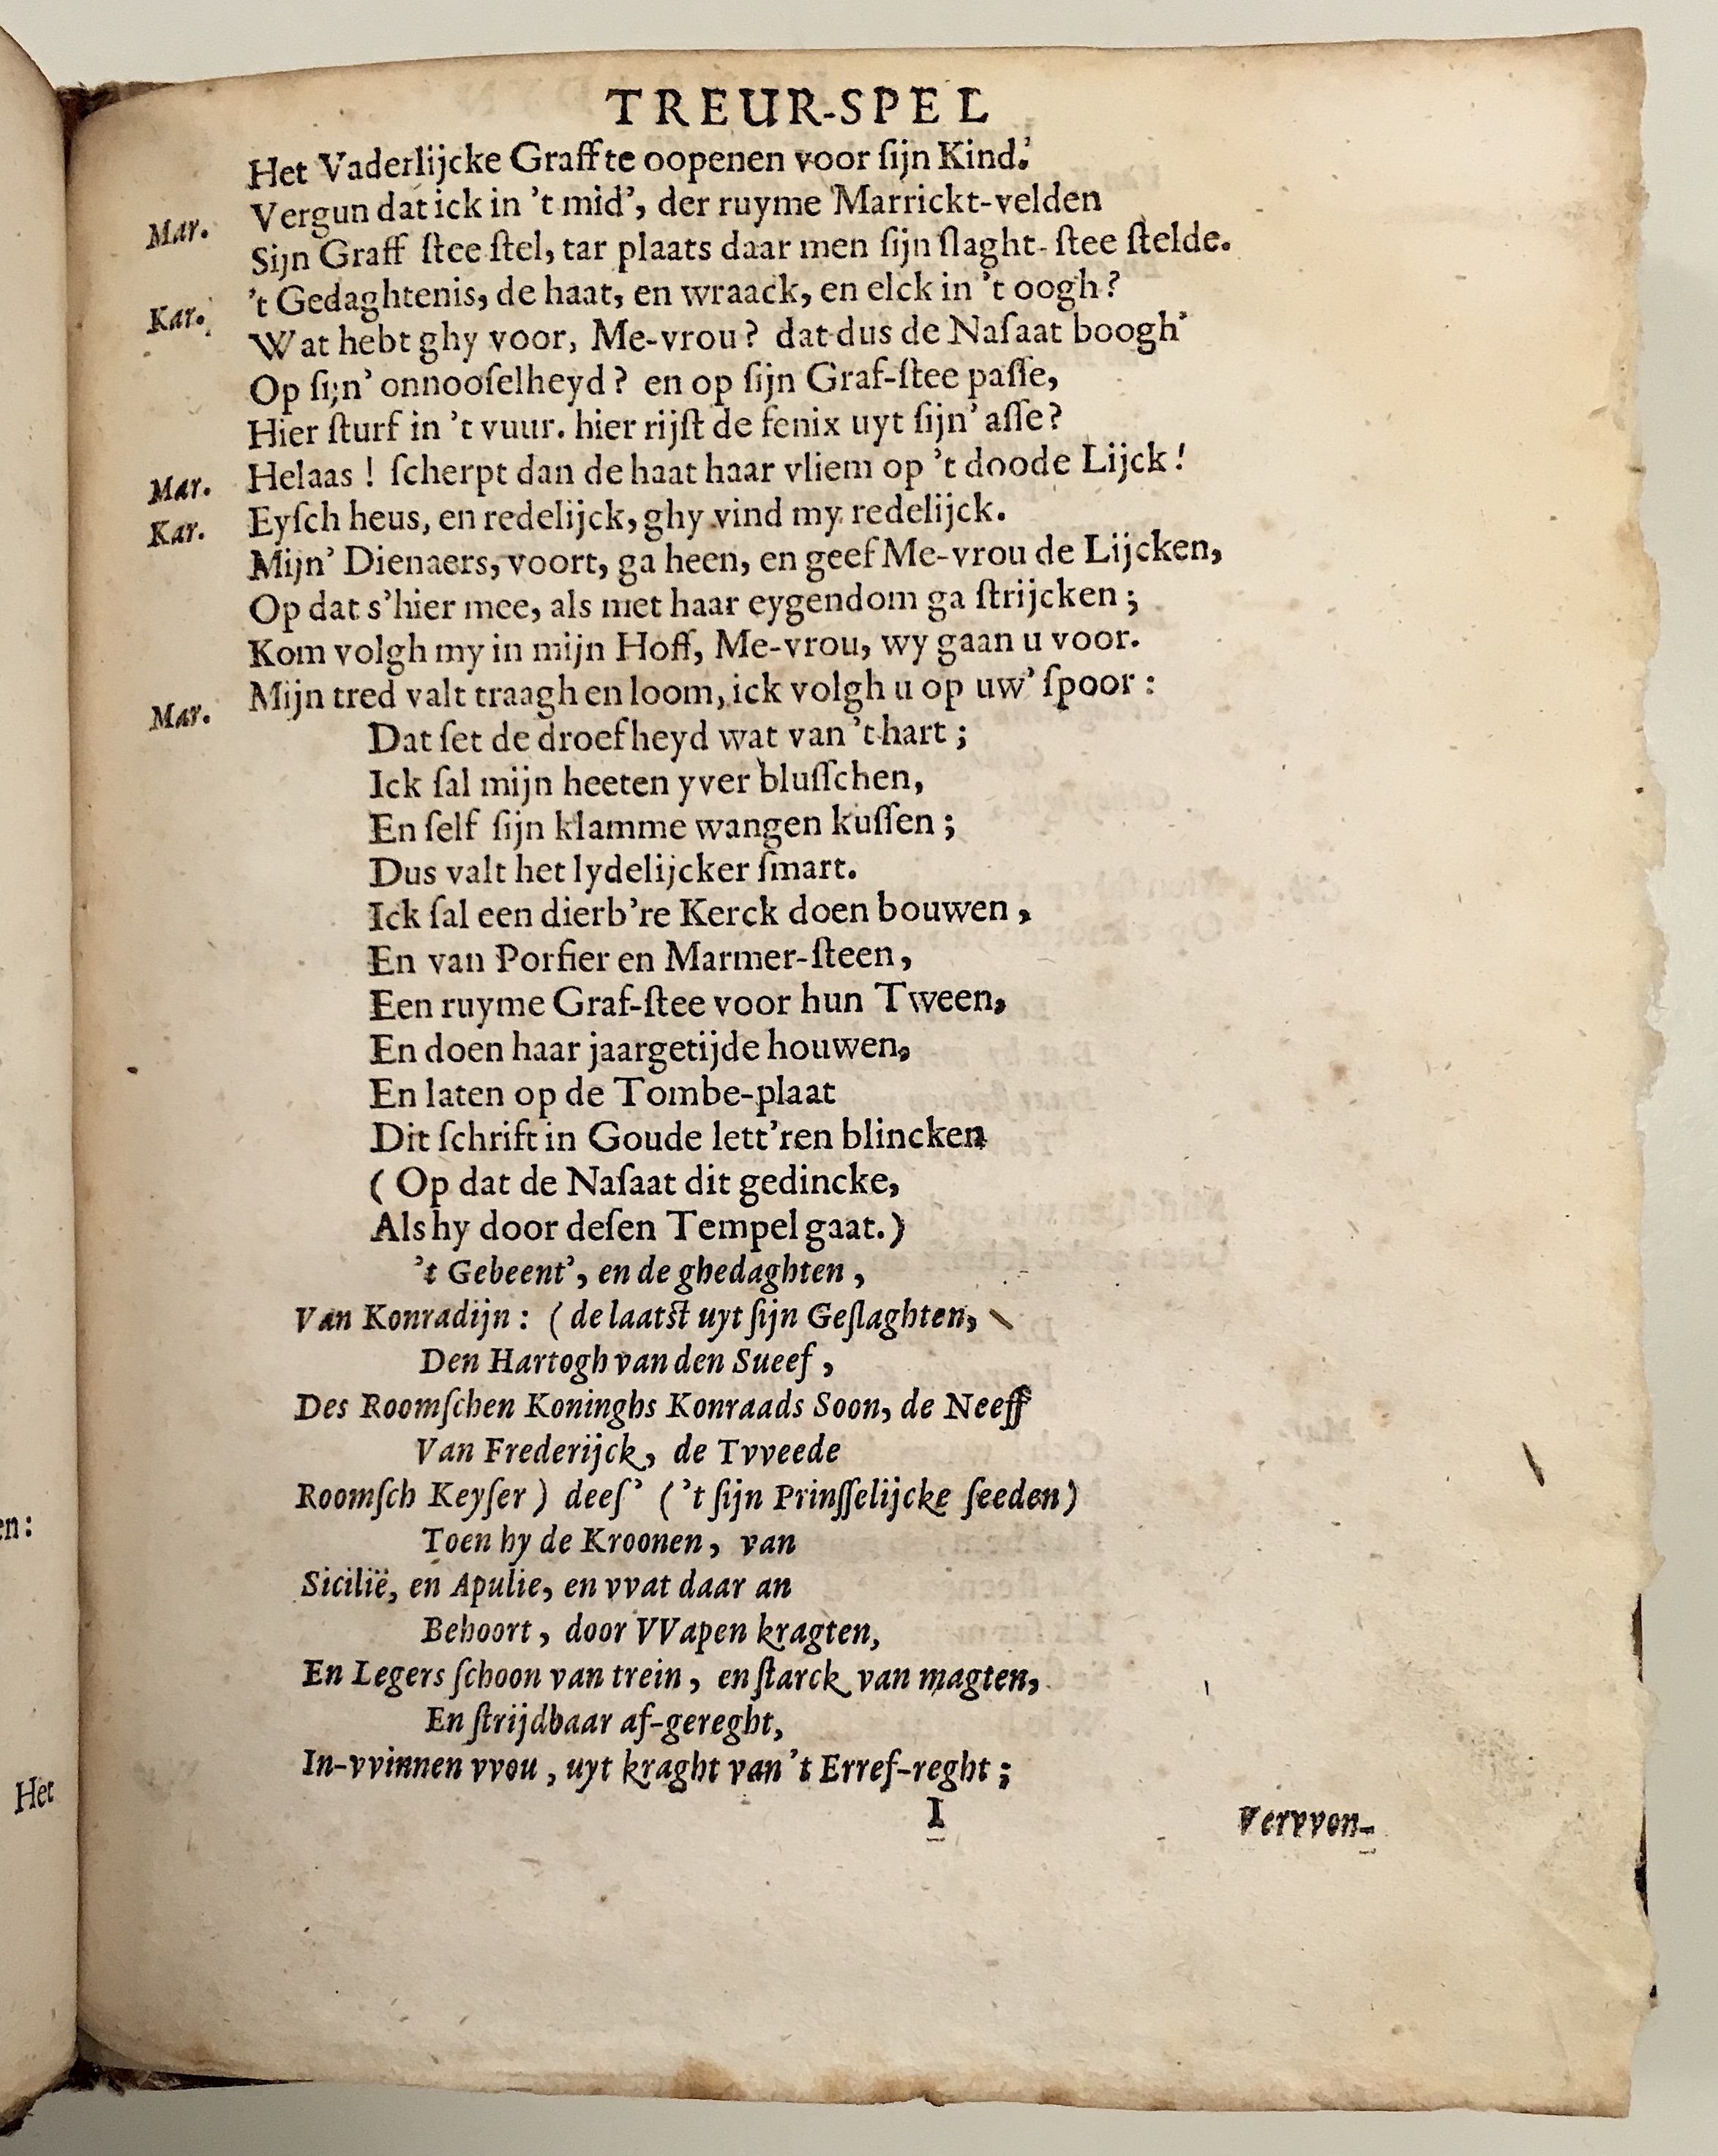 TREUR-SPEL
Het Vaderlijcke Graff te oopenen voor ſijn Kind.
Mar. Vergun dat ick in 't mid', der ruyme Marrickt-velden
Sijn Graff ſtee ſtel, tar plaats daar men ſijn ſlaght-ſtee ſtelde.
Kar. 't Gedaghtenis, de haat, en wraack, en elck in 't oogh?
Wat hebt ghy voor, Me-vrou? dat dus de Naſaat boogh'
Op ſijn' onnooſelheyd? en op ſijn Graf-ſtee paſſe,
Hier ſturf in 't vuur. hier rijſt de fenix uyt ſijn' aſſe?
Mar. Helaas! ſcherpt dan de haat haar vliem op 't doode Lijck!
Kar. Eyſch heus, en redelijck, ghy vind my redelijck.
Mijn' Dienaers, voort, ga heen, en geef Me-vrou de Lijcken,
Op dat s'hier mee, als met haar eygendom ga ſtrijcken;
Kom volgh my in mijn Hoff, Me-vrou, wy gaan u voor.
Mar. Mijn tred valt traagh en loom, ick volgh u op uw' ſpoor:
Dat ſet de droefheyd wat van 't hart;
Ick ſal mijn heeten yver bluſſchen,
En ſelf ſijn klamme wangen kuſſen;
Dus valt het lydelijcker ſmart.
Ick ſal een dierb're Kerck doen bouwen,
En van Porfier en Marmer-ſteen,
Een ruyme Graf-ſtee voor hun Tween,
En doen haar jaargetijde houwen,
En laten op de Tombe-plaat
Dit ſchrift in Goude lett'ren blincken
(Op dat de Naſaat dit gedincke,
Als hy door deſen Tempel gaat.)
't Gebeent', en de ghedaghten,
Van Konradijn: (de laatſt uyt ſijn Geſlaghten,
Den Hartogh van den Sueef,
Des Roomſchen Koninghs Konraads Soon, de Neeff
Van Frederijck, de Tvveede
Roomſch Keyſer) deeſ' ('t ſijn Prinſſelijcke ſeeden)
Toen hy de Kroonen, van
Sicilië, en Apulie, en vvat daar an
Behoort, door VVapen kragten,
En Legers ſchoon van trein, en ſtarck van magten,
En ſtrijdbaar af-gereght,
In-vvinnen vvou, uyt kraght van 't Erref-reght;
I
Vervvon-
en:
Het